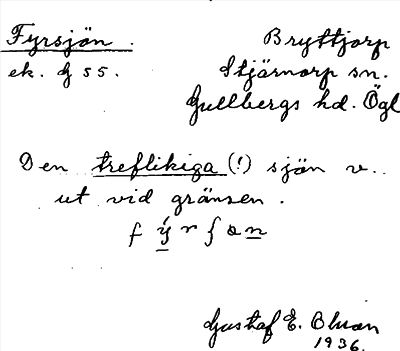 Fyrsjön.
ek. G 55.
Bryttjorp
Stjärnorp sn.
Gullbergs hd. Ögl
Den treflikiga (!) sjön v..
ut vid gränsen.
f ý r ʃ ɵ n
Gustaf E. Olsson
1936.